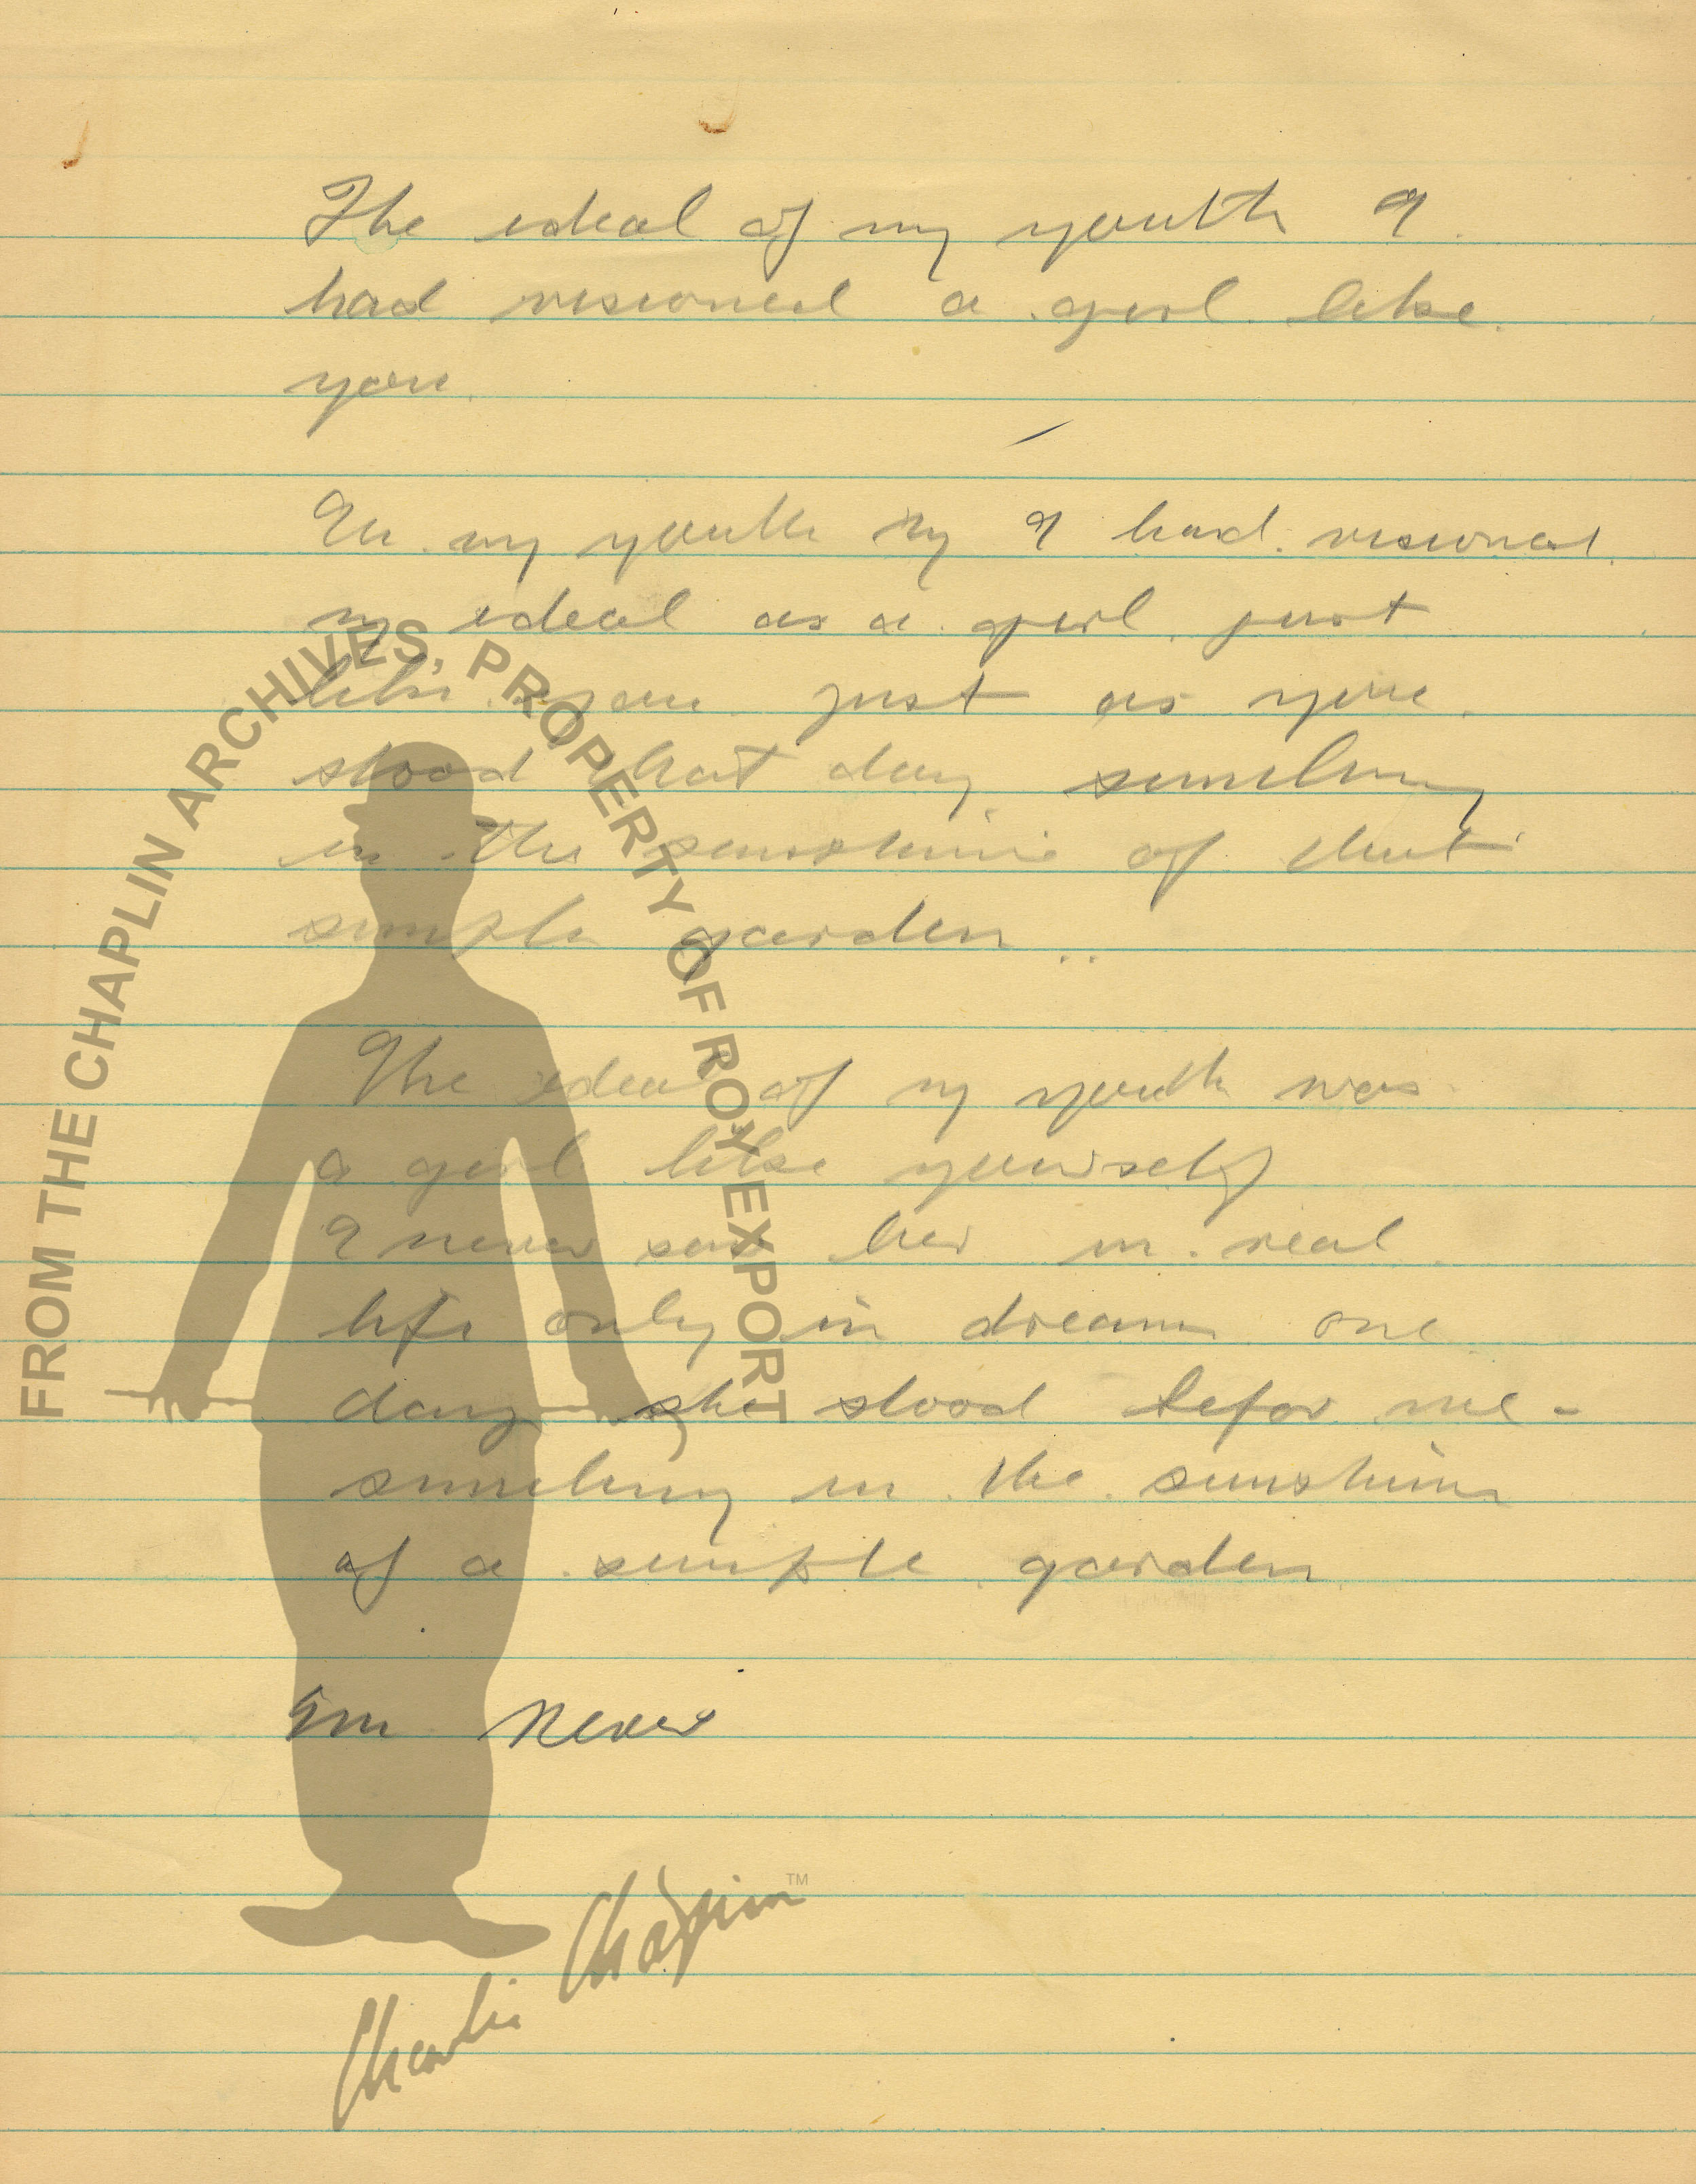 The ideal of my youth I
had visioned a girl like
you.
In my youth my I had visioned
my ideal as a girl just
like you just as you
stood that day smiling
in the sunshine of that
simple garden ..
The ideal of my youth was
a girl like yourself
I never saw her in real
life only in dreams one
day she stood befor me -
smiling in the sunshine
of a simple garden
never
FROM THE CHAPLIN ARCHIVES, PROPERTY OF ROY EXPORT
Charlie Chaplin™